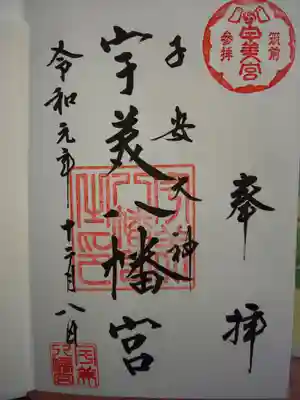 筑前
宇美宮
参拝
奉拝
子安大神
宇美八幡宮
令和元年十二月八日